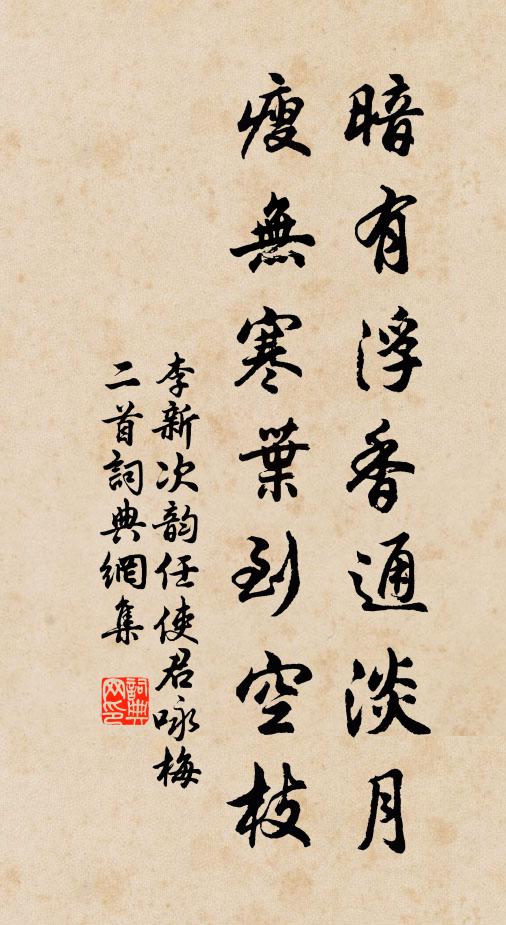 暗有浮香通淡月
瘦無寒葉到空枝
李新次韵任使君咏梅
二首詞典網集
詞典网印